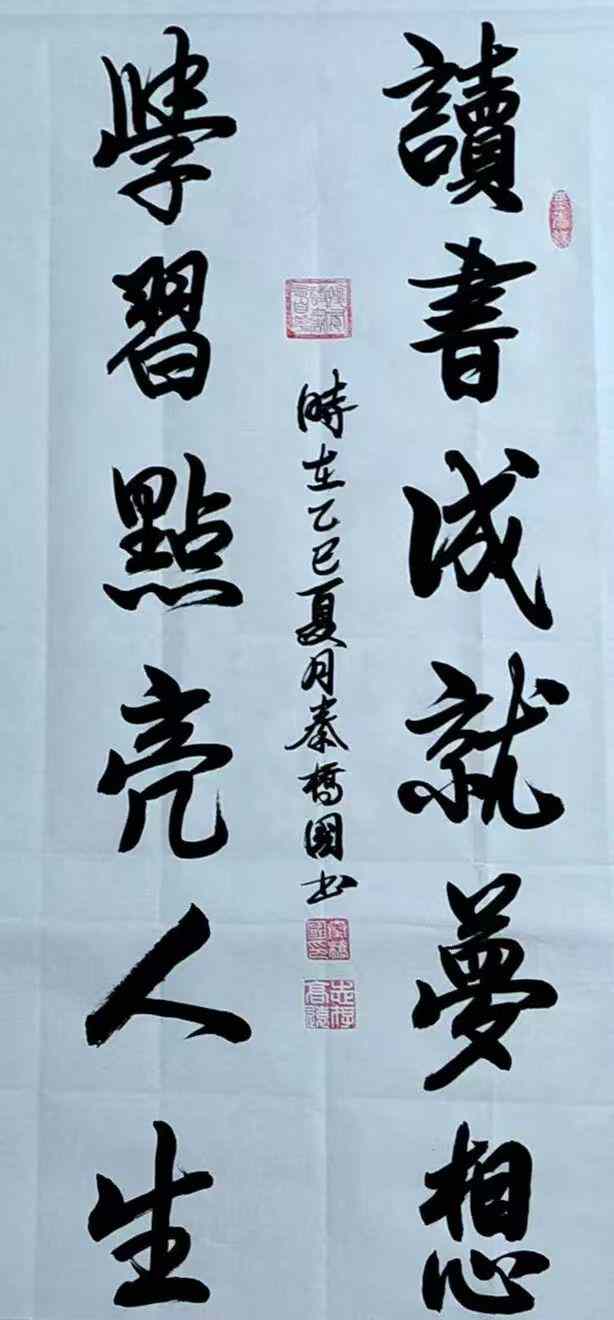 讀書成就夢想
學習點亮人生
時在乙巳夏月秦橋國书
志存高遠